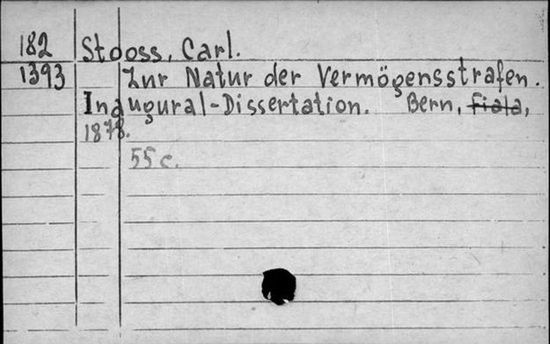 182 Stooss, Carl.
1393 Zur Natur der Vermögensstrafen.
Inaugural-Dissertation. Bern, Fiala,
1878.
55 c.